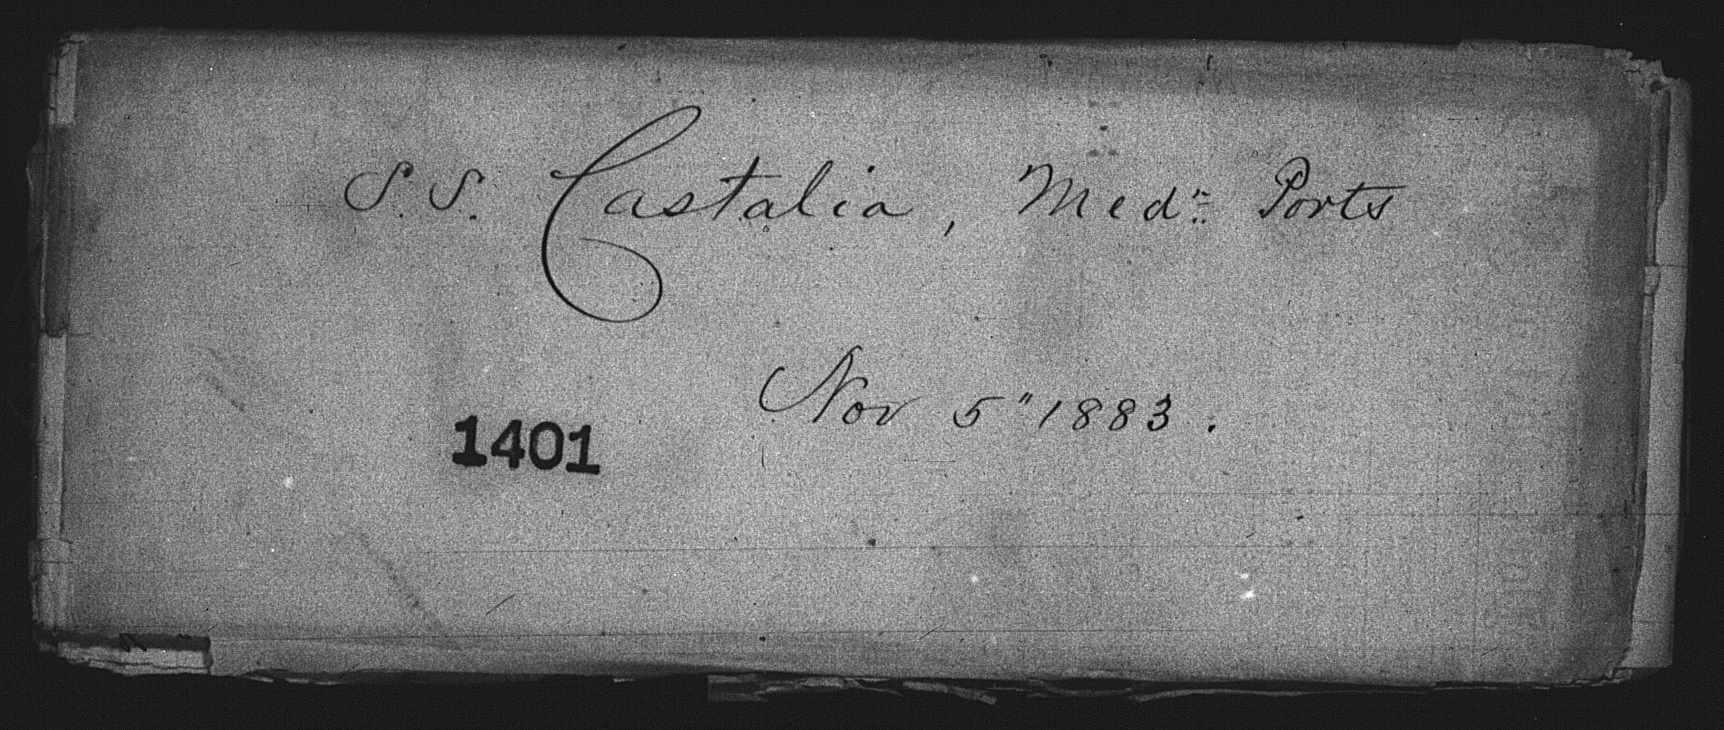 S.S. Castalia, Medn Ports
Nov 5" 1883.
1401